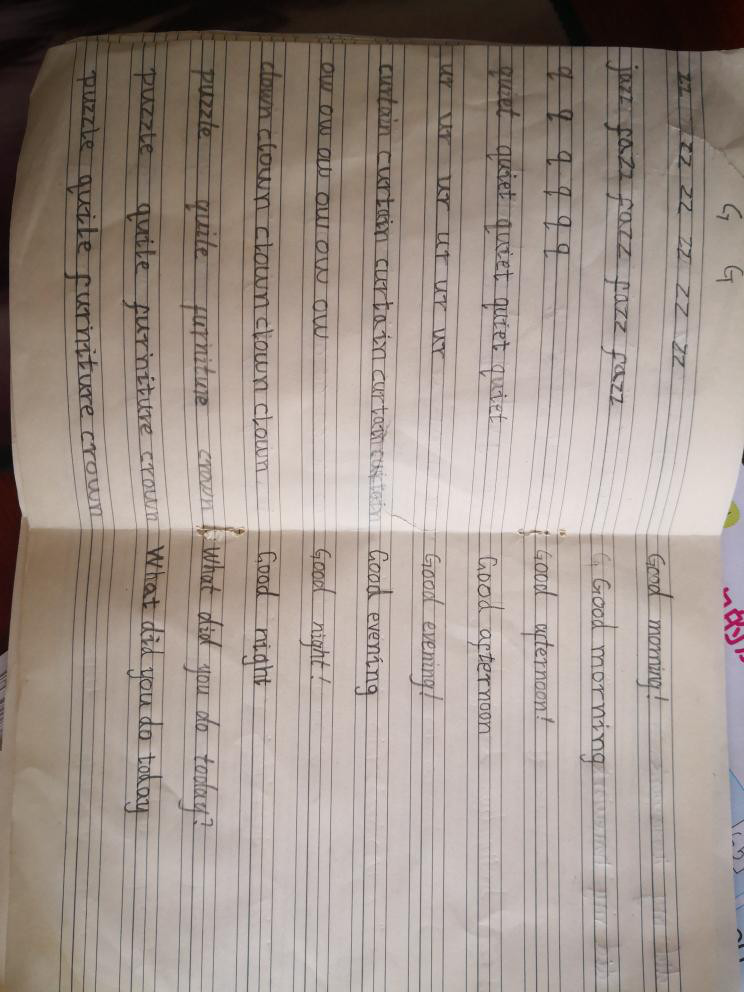 G G
zz zz zz zz zz zz
jazz jazz jazz jazz jazz
q q q q q q
quiet quiet quiet quiet quiet
ur ur ur ur ur ur
curtain curtain curtain curtain curtain
ow ow ow ow ow ow
clown clown clown clown
puzzle quite furniture crown
puzzle quite furiniture crown
puzzle quite furiniture crown
Good morning!
G Good morning
Good afternoon!
Good afternoon
Good evening!
Good evening
Good night!
Good night
What did you do today?
What did you do today